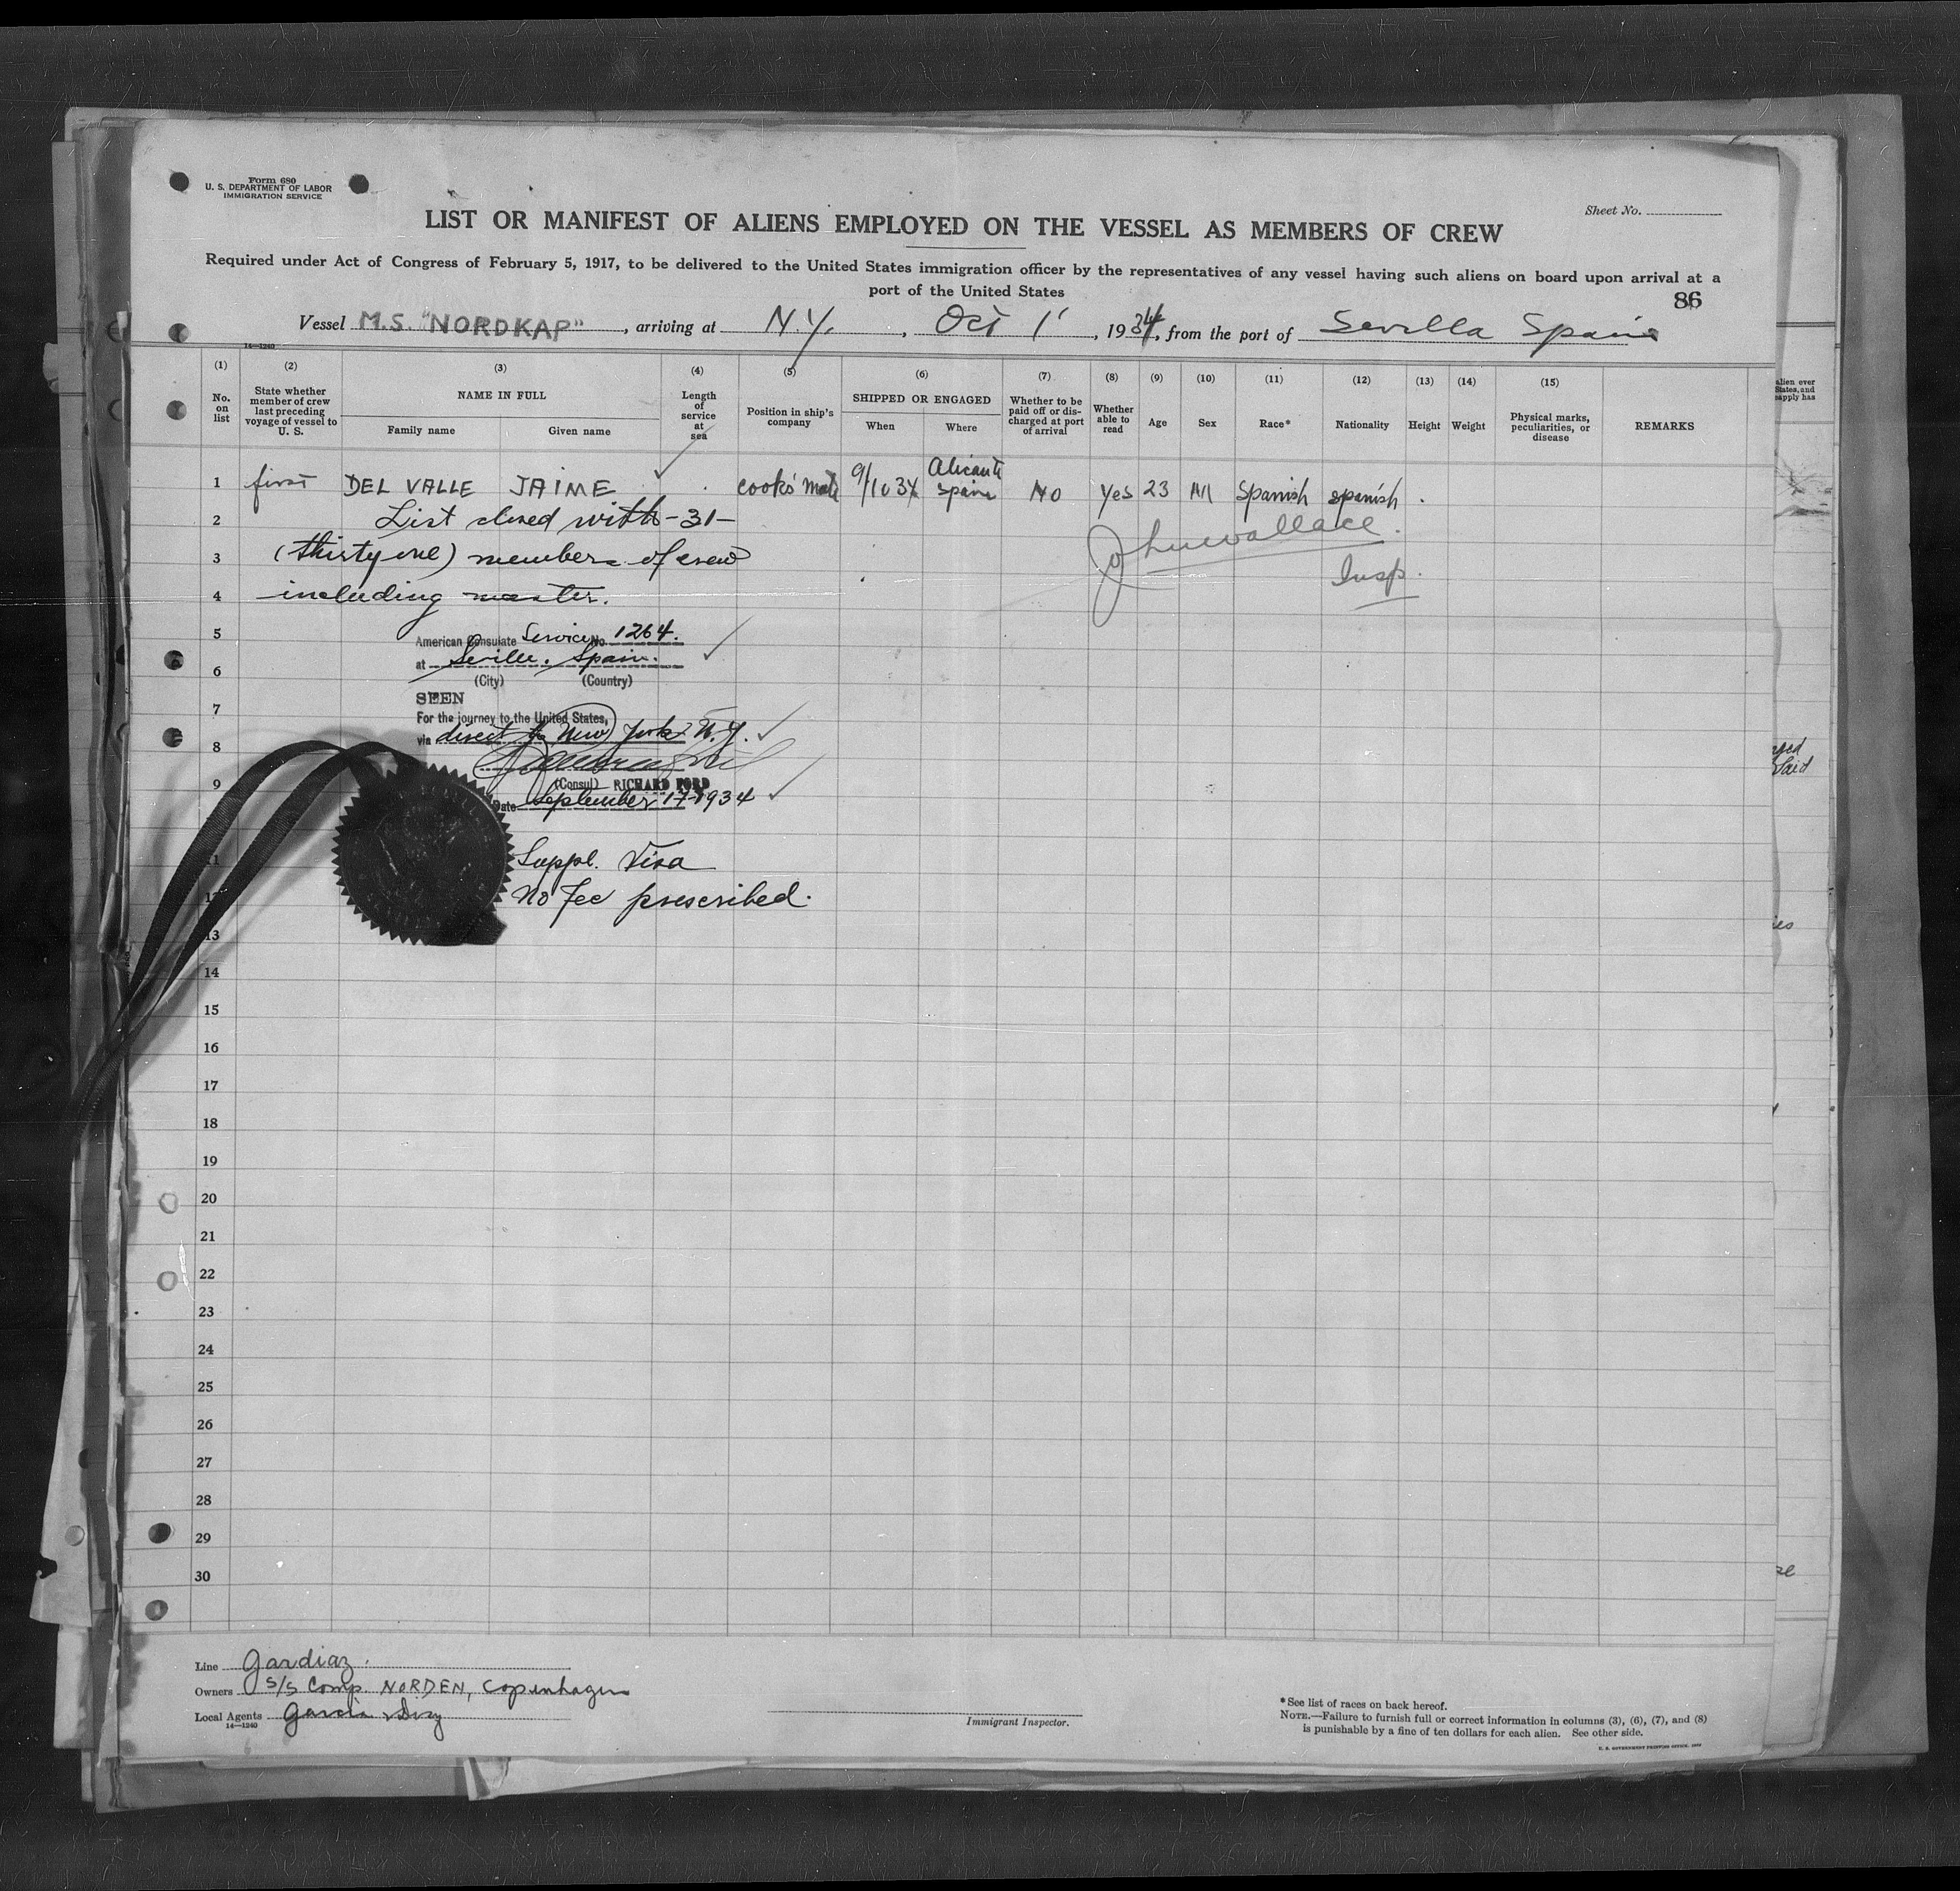 Form 680
U. S. DEPARTMENT OF LABOR
IMMIGRATION SERVICE
Sheet No.
LIST OR MANIFEST OF ALIENS EMPLOYED ON THE VESSEL AS MEMBERS OF CREW
Required under Act of Congress of February 5, 1917, to be delivered to the United States immigration officer by the representatives of any vessel having such aliens on board upon arrival at a
port of the United States
86
Vessel M.S. "NORDKAP", arriving at N.Y., Oct 1, 1934, from the port of Sevilla Spain
14—1240
(1) (2) (3) (4) (5) (6) (7) (8) (9) (10) (11) (12) (13) (14) (15)
No. on list
State whether member of crew last preceding voyage of vessel to U. S.
NAME IN FULL
Family name
Given name
Length of service at sea
Position in ship's company
SHIPPED OR ENGAGED
When
Where
Whether to be paid off or discharged at port of arrival
Whether able to read
Age
Sex
Race*
Nationality
Height
Weight
Physical marks, peculiarities, or disease
REMARKS
1 first DEL VALLE JAIME cook's mate 9/10 34 Alicante Spain NO Yes 23 M Spanish spanish
2 List closed with -31-
3 (thirty one) members of crew
4 including master.
John Wallace
Insp.
5 American Consulate Service No. 1264.
6 at Seville, Spain.
(City) (Country)
SEEN
7 For the journey to the United States,
8 via direct to New York N.Y.
9 (Consul) RICHARD FORD
Date September 17-1934
11 Suppl. Visa
12 No Fee prescribed.
13
14
15
16
17
18
19
20
21
22
23
24
25
26
27
28
29
30
Line Gardiaz.
Owners S/S Comp. NORDEN, Copenhagen
Local Agents Garcia & Diaz
14—1240
Immigrant Inspector.
*See list of races on back hereof.
NOTE.—Failure to furnish full or correct information in columns (3), (6), (7), and (8)
is punishable by a fine of ten dollars for each alien. See other side.